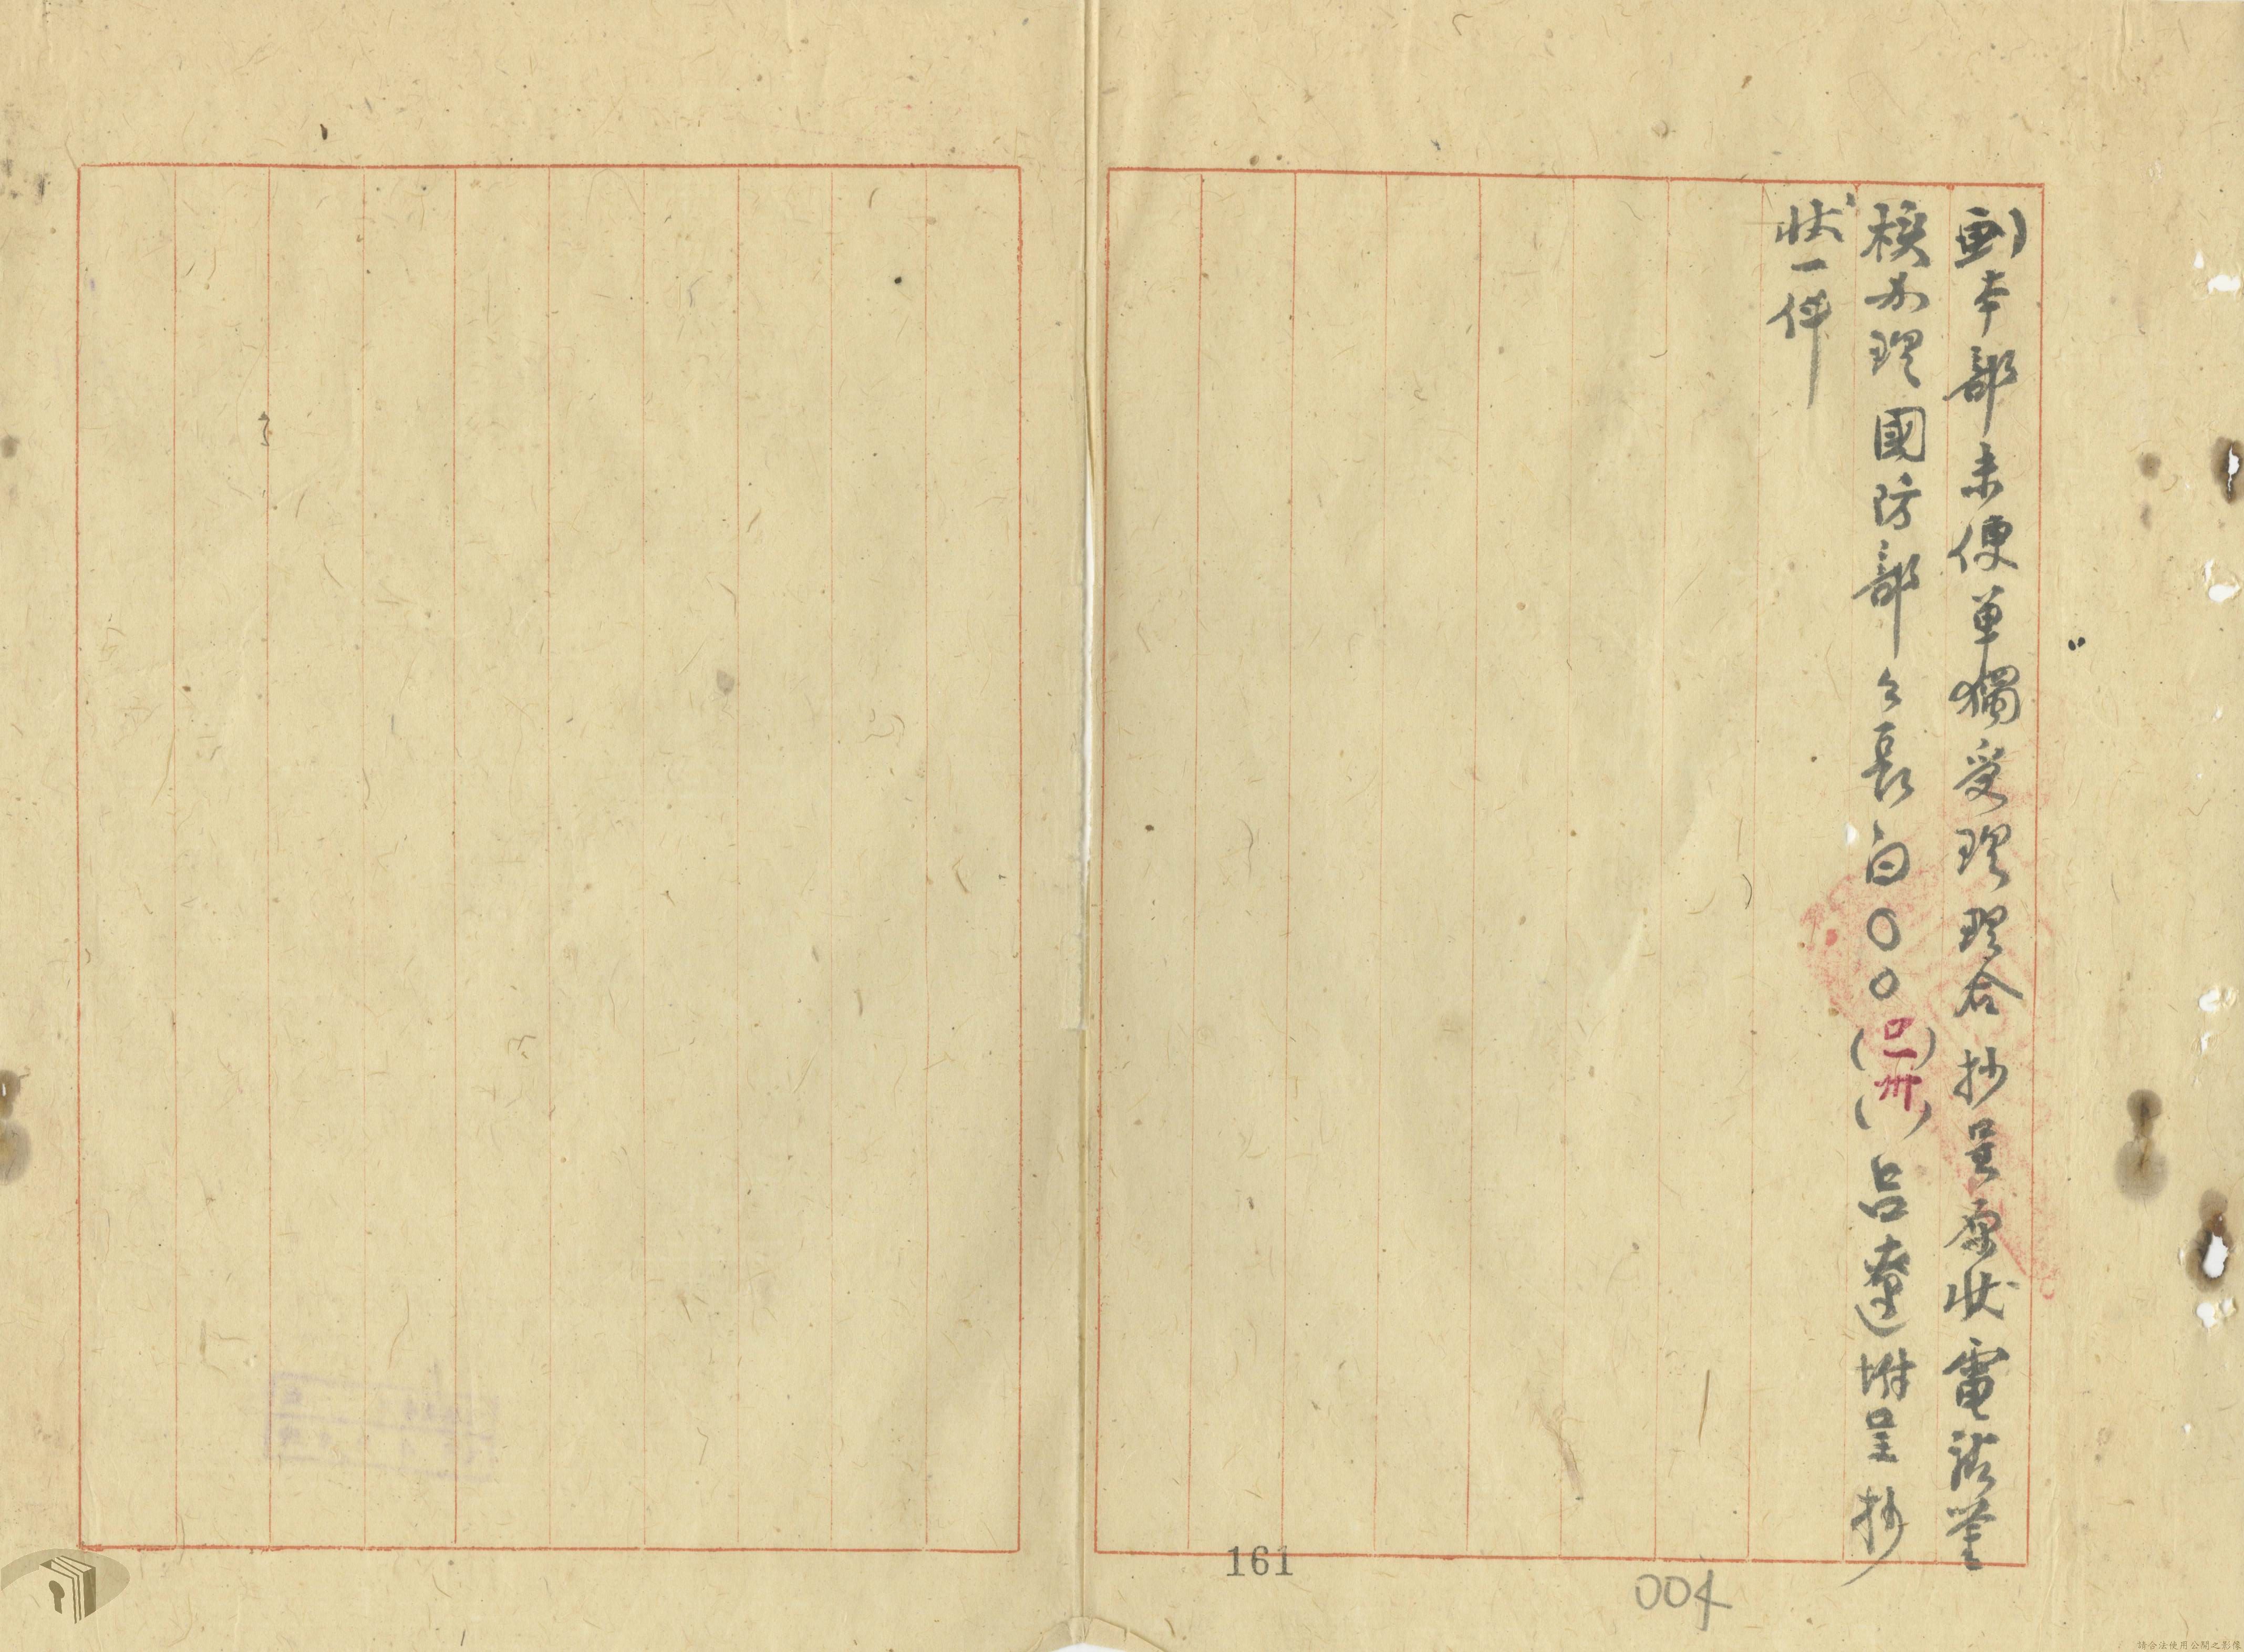 劃本部未便單獨受理理合抄呈原狀電請鑒
核办理國防部々長白○○(卩一卅)呂達附呈抄
狀一件
161
004
請合法使用公開之影像